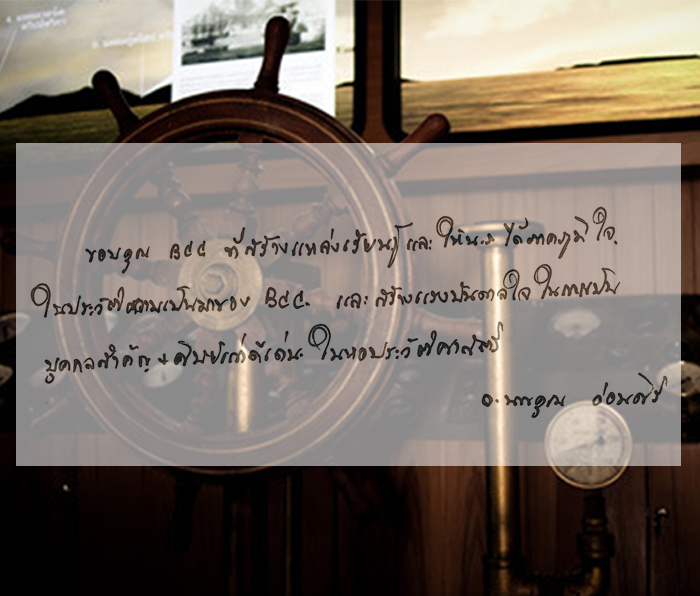 ขอบคุณ BCC ที่สร้างแหล่งเรียนรู้ และ ให้นร. ได้ภาคภูมิใจ
ในประวัติความเป็นมาของ BCC. และ สร้างแรงบันดาลใจ ในการเป็น
บุคคลสำคัญ + ศิษย์เก่าดีเด่น ในหอประวัติศาสตร์
อ.